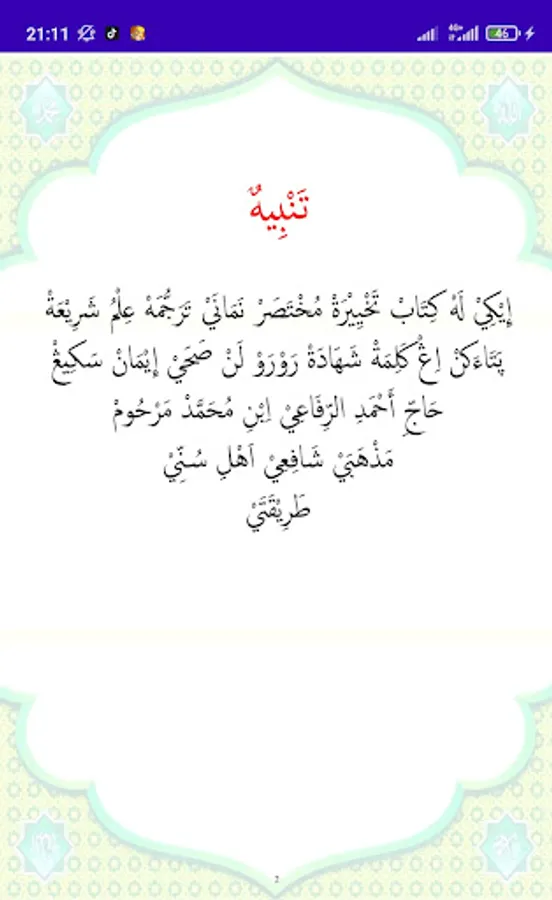 21:11
4G+
46
تَنْبِيهٌ
إِيْكِيْ لَهْ كِتَابْ تَخْيِيْرَةْ مُخْتَصَرْ نَمَانَيْ تَرَجُّمَهْ عِلْمُ شَرِيْعَةْ
پَتَاءَكَنْ اِڠْ كَلِمَةْ شَهَادَةْ رَوْرَوْ لَنْ صَحَيْ إِيْمَانْ سَكِيڠْ
حَاجِّ أَحْمَدِ الرِّفَاعِيْ اِبْنِ مُحَمَّدْ مَرْحُومْ
مَذْهَبَيْ شَافِعِيْ اَهْلِ سُنِّيْ
طَرِيْقَتَيْ
2